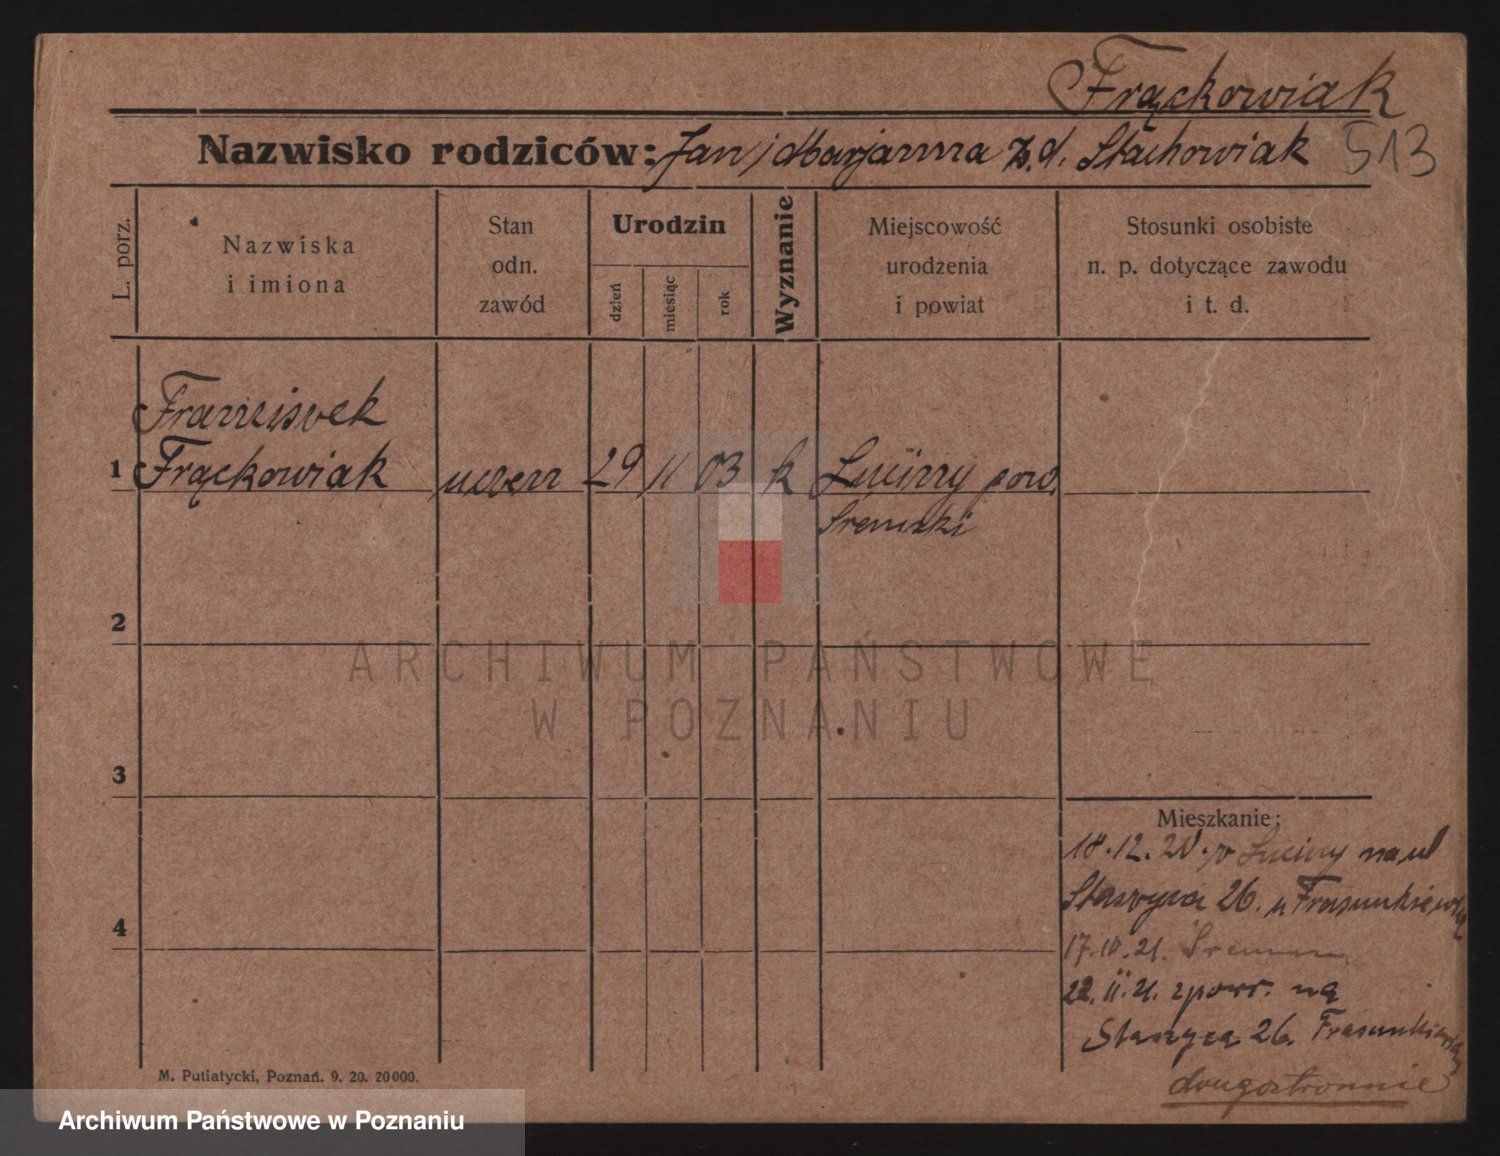 Frąckowiak
Nazwisko rodziców: Jan i Marjanna z.d. Stachowiak 513
L. porz.
Nazwiska
i imiona
Stan
odn.
zawód
Urodzin
dzień
miesiąc
rok
Wyznanie
Miejscowość
urodzenia
i powiat
Stosunki osobiste
n. p. dotyczące zawodu
i t. d.
Franciszek
1 Frąckowiak uczeń 29 11 03 k Luciny pow.
Śremski
2
3
4
Mieszkanie:
18.12.20. z Luciny na ul
Staszyca 26. u Frasunkiewicz
17.10.21. Śremu
22. II. 21. zpowr. na
Staszyca 26. Frasunkiewicz
drugostronnie
M. Putiatycki, Poznań. 9. 20. 20000.
ARCHIWUM PAŃSTWOWE
W POZNANIU
Archiwum Państwowe w Poznaniu